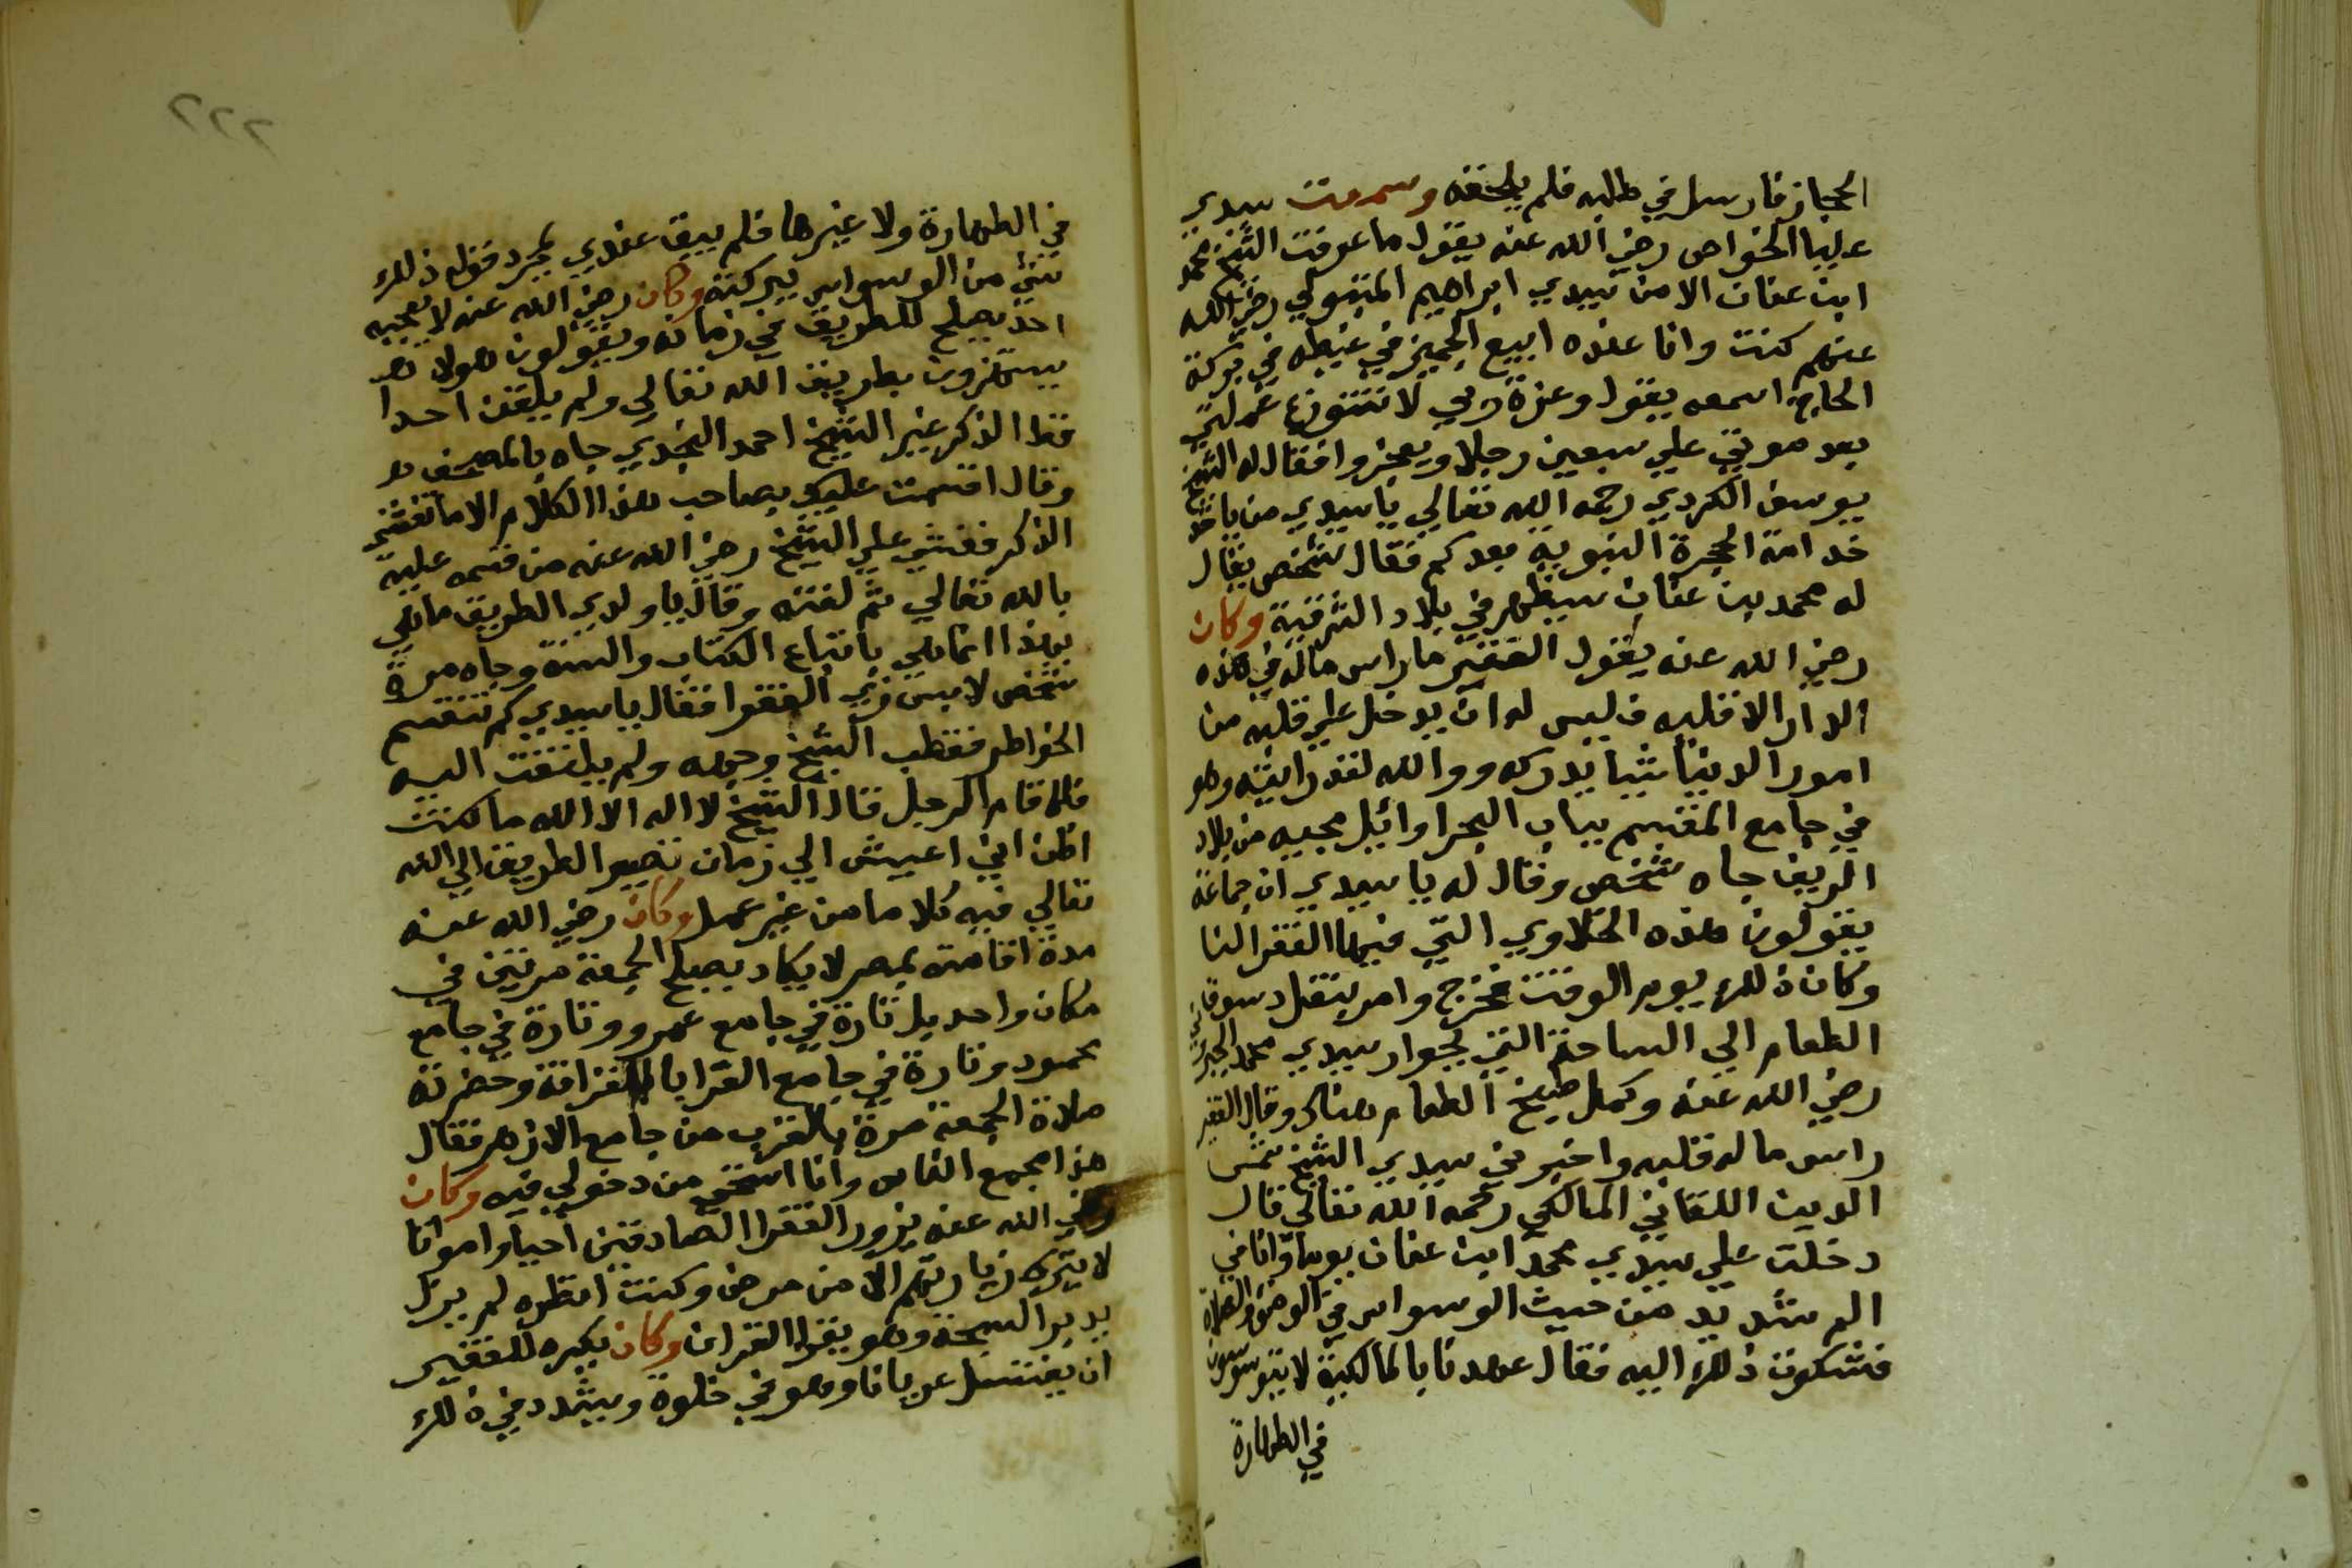 الحجاز فارسل في طلبه فلم يلحقه وسمعت سيدي
عليا الخواص رضي الله عنه يقول ما عرفت الشيخ محمد
ابن عنان الا من سيدي ابراهيم المتبولي رضي الله
عنهم كنت وانا عنده ابيع الجميز في غيطه في بركة
الحاج اسمعه يقول وعزة ربي لا تتوزع عملتي
بعد موتي علي سبعين رجلا ويعجزوا فقال له الشيخ
يوسف الكردي رحمه الله تعالي يا سيدي من ياخذ
خدامة الحجرة النبوية بعدكم فقال شخص يقال
له محمد بن عنان سيظهر في بلاد الشرقية وكان
رضي الله عنه يقول الفقير ما راس ماله في هذه
الدار الا قلبه فليس له ان يدخل علي قلبه من
امور الدنيا شيا يدركه ووالله لقد رايته وهو
في جامع المقسم بباب البحر اوايل مجيه من بلاد
الريف جاه شخص وقال له يا سيدي ان جماعة
يقولون هذه الخلاوي التي فيها الفقرا لنا
وكان ذلك يوم الوقت فخرج وامر بنقل دسوت
الطعام الي الساحة التي بجوار سيدي محمد الجبروني
رضي الله عنه وكمل طبيخ الطعام هناك وقال الفقير
راس ماله قلبه واخبرني سيدي الشيخ شمس
الدين اللقاني المالكي رحمه الله تعالي قال
دخلت علي سيدي محمد ابن عنان يوما وانا في
الم شديد من حيث الوسواس في الوضوء والصلاة
فشكوت ذلك اليه فقال عهدنا بالمالكية لا يتوسوسون
في الطهارة
٢٢٢
في الطهارة ولا غيرها فلم يبق عندي بمجرد قوله ذلك
شيئ من الوسواس ببركته وكان رضي الله عنه لا يعجبه
احد يصلح للطريق في زمانه ويقولون هولا
يستهزون بطريق الله تعالي ولم يلقن احدا
قط الذكر غير الشيخ احمد النجدي جاه بالمصحف
وقال اقسمت عليك بصاحب هذا الكلام الا ما لقنتني
الذكر فغشي علي الشيخ رضي الله عنه من قسمه عليه
بالله تعالي ثم لقنه وقال يا ولدي الطريق ما هي
بهذا انما هي باتباع الكتاب والسنة وجاه مرة
شخص لابس زي الفقرا فقال يا سيدي كم تنقسم
الخواطر فقطب الشيخ وجهه ولم يلتفت اليه
فلما قام الرجل قال الشيخ لا اله الا الله ما كنت
اظن اني اعيش الي زمان تصير الطريق الي الله
تعالي فيه كلاما من غير عمل وكان رضي الله عنه
مدة اقامته بمصر لا يكاد يصلي الجمعة مرتين في
مكان واحد بل تارة في جامع عمرو وتارة في جامع
محمود وتارة في جامع القرا بالقرافة وحضرته
صلاة الجمعة مرة بالقرب من جامع الازهر فقال
هذا مجمع الناس وانا استحي من دخولي فيه وكان
رضي الله عنه يزور الفقرا الصادقين احيا وامواتا
لا يترك زيارتهم الا من مرض وكنت انظره لم يزل
يدير السبحة وهو يقرا القران وكان يكره للفقير
ان يغتسل عريانا وهو في خلوة ويشدد في ذلك